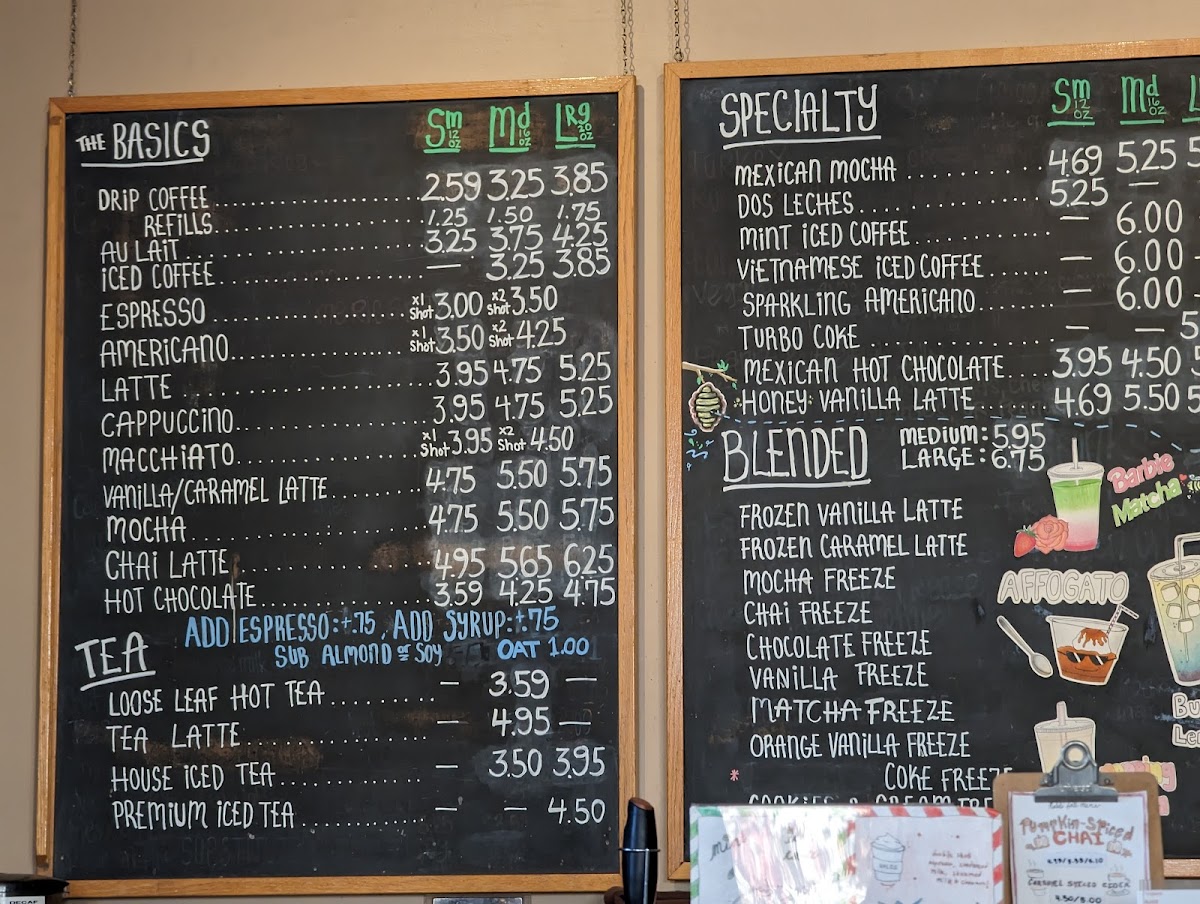 THE BASICS Sm 12 OZ Md 16 OZ LRg 20 OZ
DRIP COFFEE 2.59 3.25 3.85
REFILLS 1.25 1.50 1.75
AU LAIT 3.25 3.75 4.25
ICED COFFEE — 3.25 3.85
ESPRESSO x1 Shot 3.00 x2 Shot 3.50
AMERICANO x1 Shot 3.50 x2 Shot 4.25
LATTE 3.95 4.75 5.25
CAPPUCCINO 3.95 4.75 5.25
MACCHIATO x1 Shot 3.95 x2 Shot 4.50
VANILLA/CARAMEL LATTE 4.75 5.50 5.75
MOCHA 4.75 5.50 5.75
CHAI LATTE 4.95 5.65 6.25
HOT CHOCOLATE 3.59 4.25 4.75
ADD ESPRESSO:+.75, ADD SYRUP:+.75
SUB ALMOND or SOY OAT 1.00
TEA
LOOSE LEAF HOT TEA — 3.59 —
TEA LATTE — 4.95 —
HOUSE ICED TEA — 3.50 3.95
PREMIUM ICED TEA — — 4.50
SPECIALTY Sm 12 OZ Md 16 OZ L
MEXICAN MOCHA 4.69 5.25 5
DOS LECHES 5.25 —
MINT ICED COFFEE — 6.00
VIETNAMESE ICED COFFEE — 6.00
SPARKLING AMERICANO — 6.00
TURBO COKE — — 5
MEXICAN HOT CHOCOLATE 3.95 4.50 5
HONEY VANILLA LATTE 4.69 5.50 5
BLENDED MEDIUM: 5.95
LARGE: 6.75
FROZEN VANILLA LATTE
FROZEN CARAMEL LATTE
MOCHA FREEZE
CHAI FREEZE
CHOCOLATE FREEZE
VANILLA FREEZE
MATCHA FREEZE
ORANGE VANILLA FREEZE
COKE FREEZE
COOKIES & CREAM FRE
Barbie
Matcha
AFFOGATO
Bu
Le
Pumpkin-Spiced
CHAI
CARAMEL SPICED CIDER
4.50/5.00
DECAF